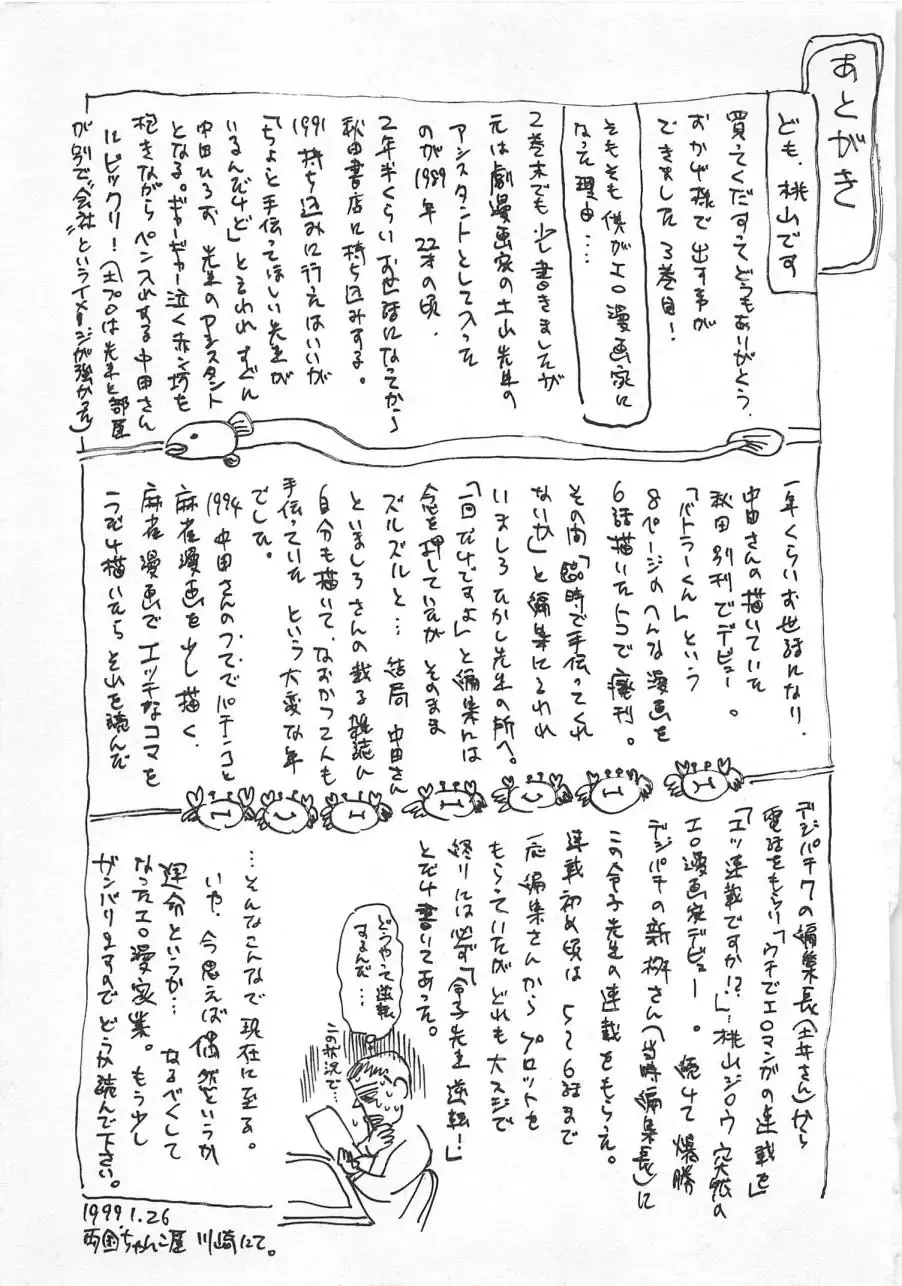 あとがき
ども、桃山です
買ってくだすってどうもありがとう。
おかげ様で出す事が
できました3巻目!
そもそも僕がエロ漫画家に
なった理由・・・・
2巻末でも少し書きましたが
元は劇漫画家の土山先生の
アシスタントとして入った
のが1989年22才の頃。
2年半くらいお世話になってから
秋田書店に持ち込みする。
1991持ち込みに行えばいいが
「ちょっと手伝ってほしい先生が
いるんだけど」と言われすぐに
中田ひろお先生のアシスタント
となる。ギャーギャー泣く赤ン坊を
抱きながらペン入れする中田さん
にビックリ!(土プロは先生と部屋
が別で“会社”というイメージが強かった)
一年くらいお世話になり
中田さんの描いていた
秋田別刊でデビュー。
「バトラーくん」という
8ページのへんな漫画を
6話描いたトコで廃刊。
その間「臨時で手伝ってくれ
ないか」と編集に言われ
いましろひかし先生の所へ。
「一回だけですよ」と編集には
念を押していたがそのまま
ズルズルと… 結局 中田さん
といましろさんの載る雑誌に
自分も描いて、なおかつ2人も
手伝っていた という大変な年
でした。
1994 中田さんのつてでパチンコと
麻雀漫画を少し描く、
麻雀漫画でエッチなコマを
1つだけ描いたら それを読んだ
デジパチ7の編集長(土井さん)から
電話をもらい「ウチでエロマンガの連載を」
「エッ連載ですか!?」…桃山ジロウ 突然の
エロ漫画家デビュー。続けて 爆勝
デジパチの新桝さん(当時編集長)に
この令子先生の連載をもらった。
連載初め頃は 5〜6話まで
一応編集さんから プロットを
もらっていたがどれも大スジで
終りには必ず「令子先生逆転!」
とだけ書いてあった。
どうやって逆転
するんだ・・・
この状況で…
…そんなこんなで現在に至る。
いや、今思えば偶然というか
運命というか… なるべくして
なったエロ漫家業。もう少し
ガンバリますので どうか読んで下さい。
1999.1.26
両国ちゃんこ屋 川崎にて。